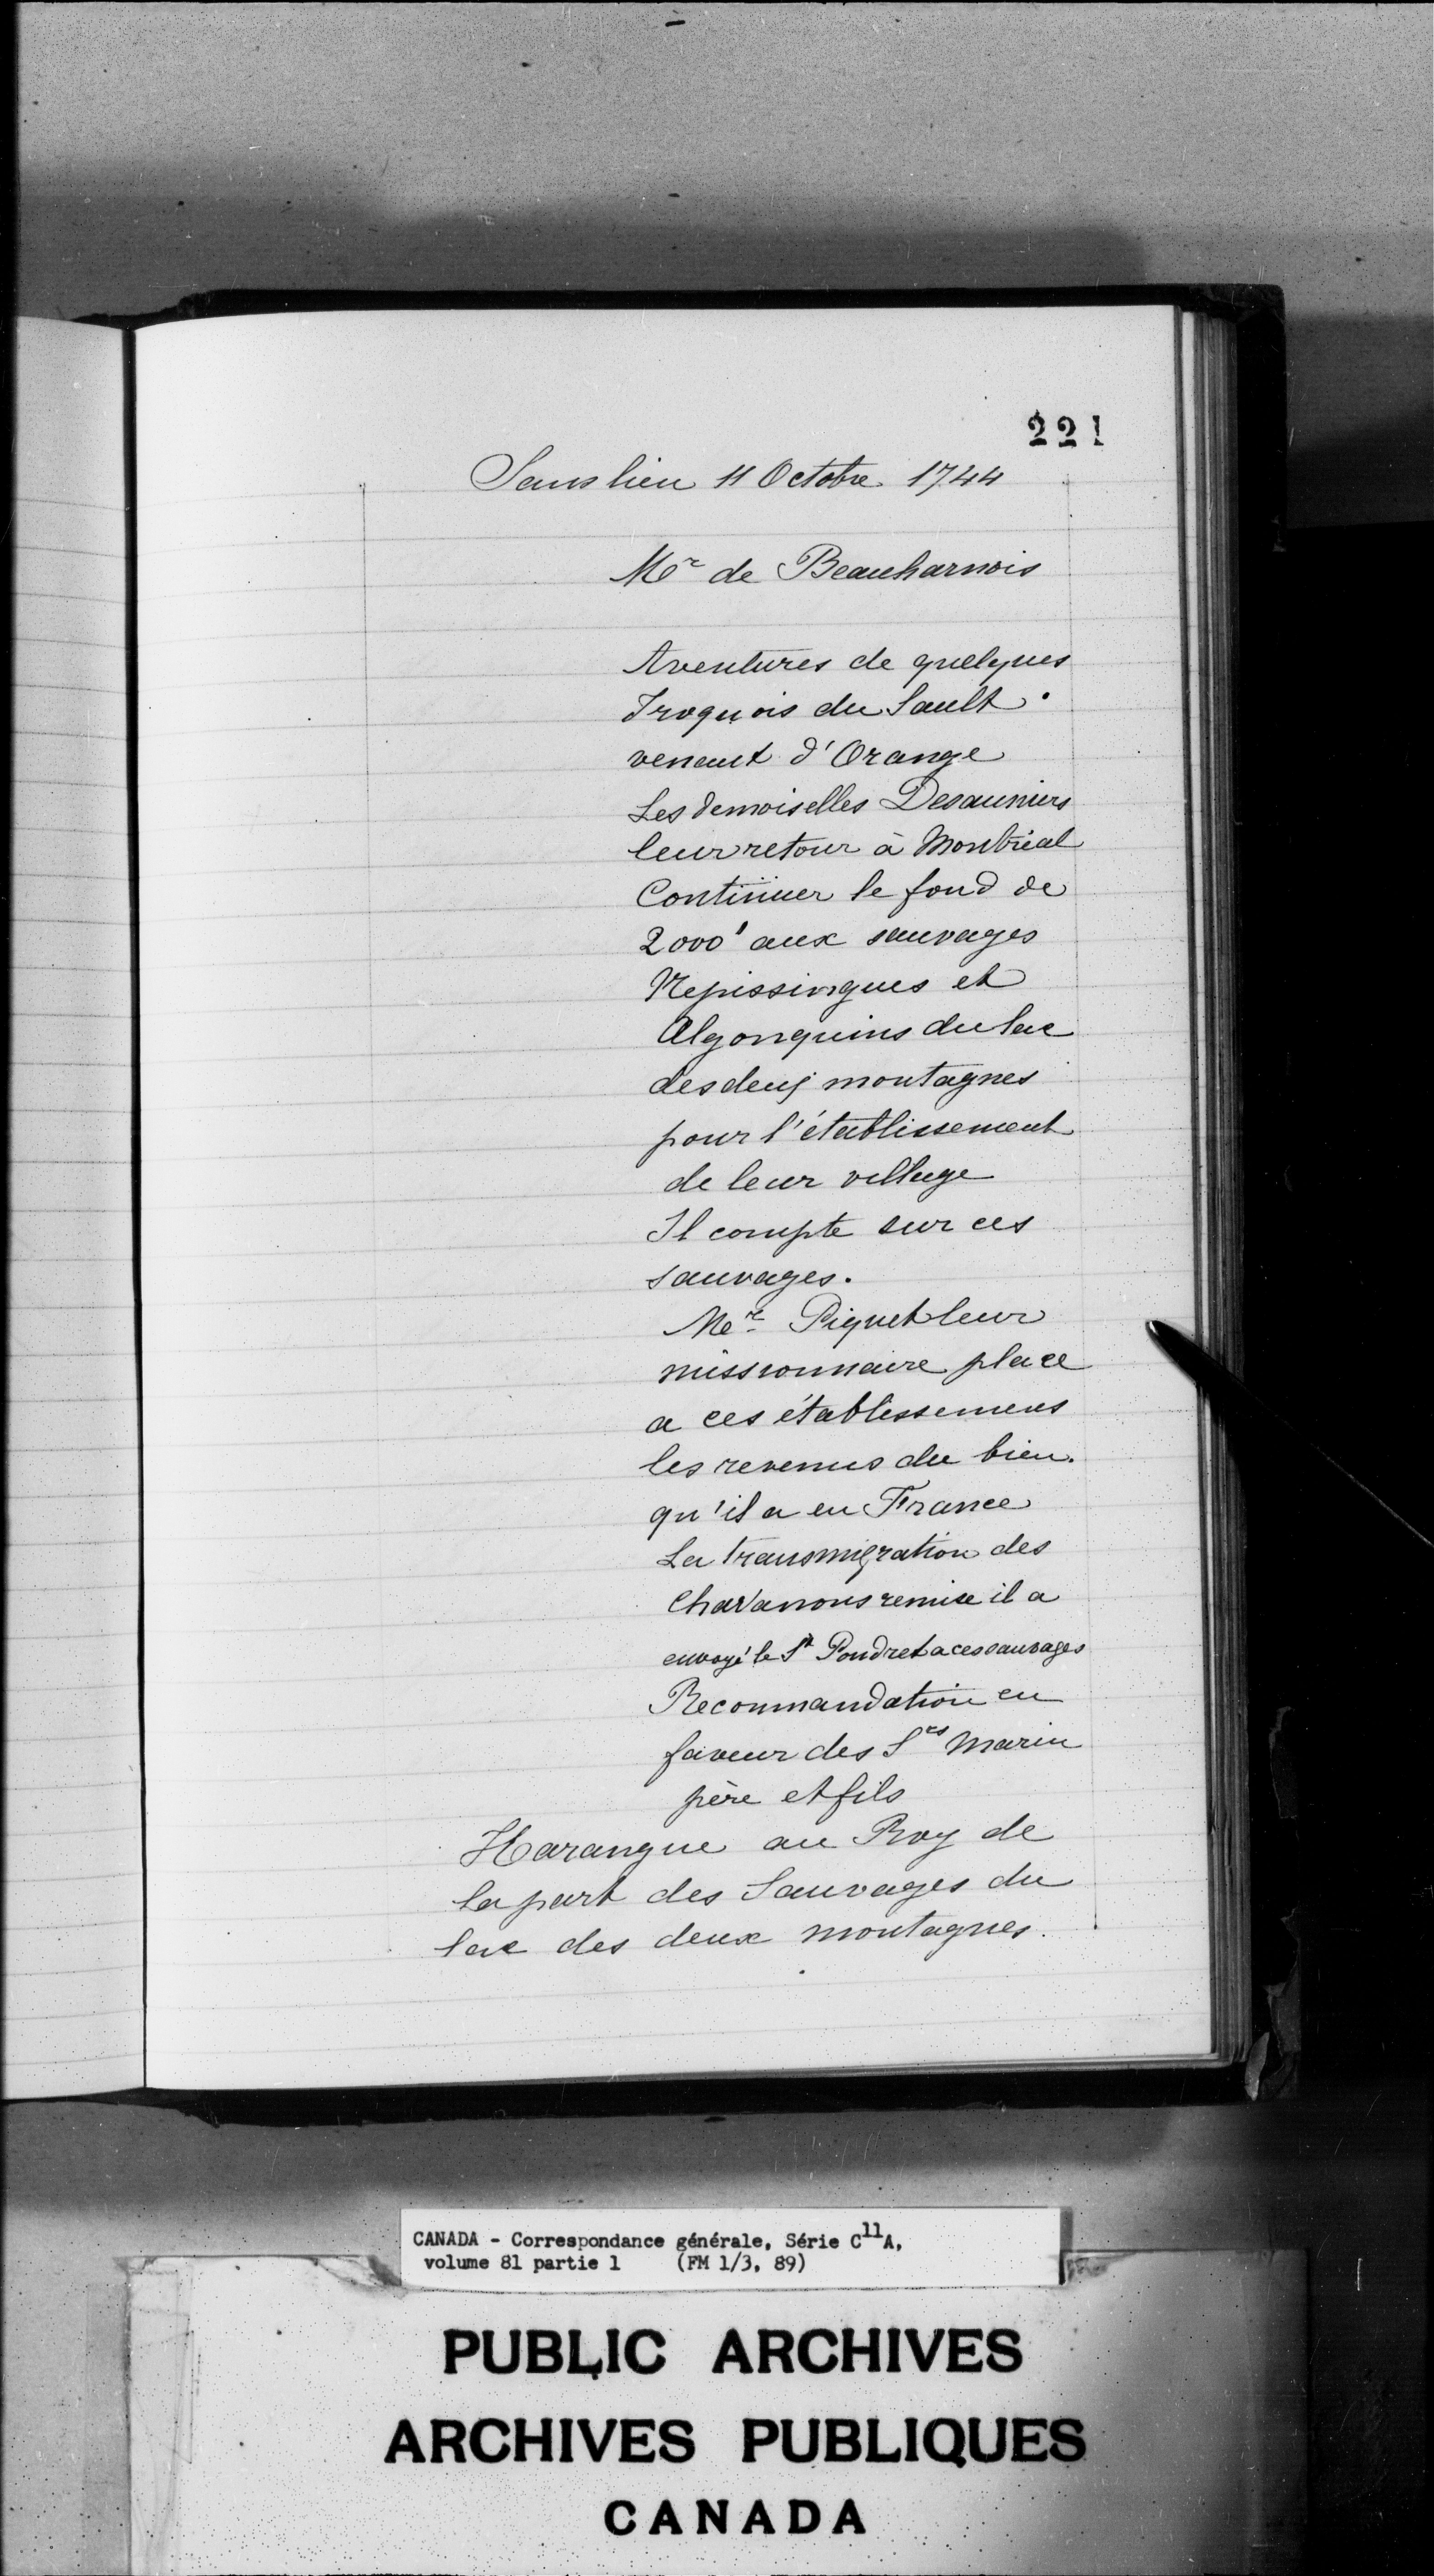 221
Sans lieu 11 Octobre 1744
Mr de Beauharnois
Aventures de quelques
Iroquois du Sault
venant d'Orange
Les demoiselles Desauniers
leur retour à Montréal
Continüer le fond de
2000' aux sauvages
Nepissingues et
Algonquins du lac
des deux montagnes
pour l'établissement
de leur village
Il compte sur ces
sauvages.
Mr Piquet leur
missionnaire place
a ces établissemens
les revenus du bien
qu'il a en France
La transmigration des
Chavanons remise il a
envoyé le Sr Poudret a ces sauvages
Recommandation en
faveur des Srs Marin
père et fils
Harangue au Roy de
la part des Sauvages du
lac des deux montagnes.
CANADA - Correspondance générale, Série C11A,
volume 81 partie 1 (FM 1/3, 89)
PUBLIC ARCHIVES
ARCHIVES PUBLIQUES
CANADA